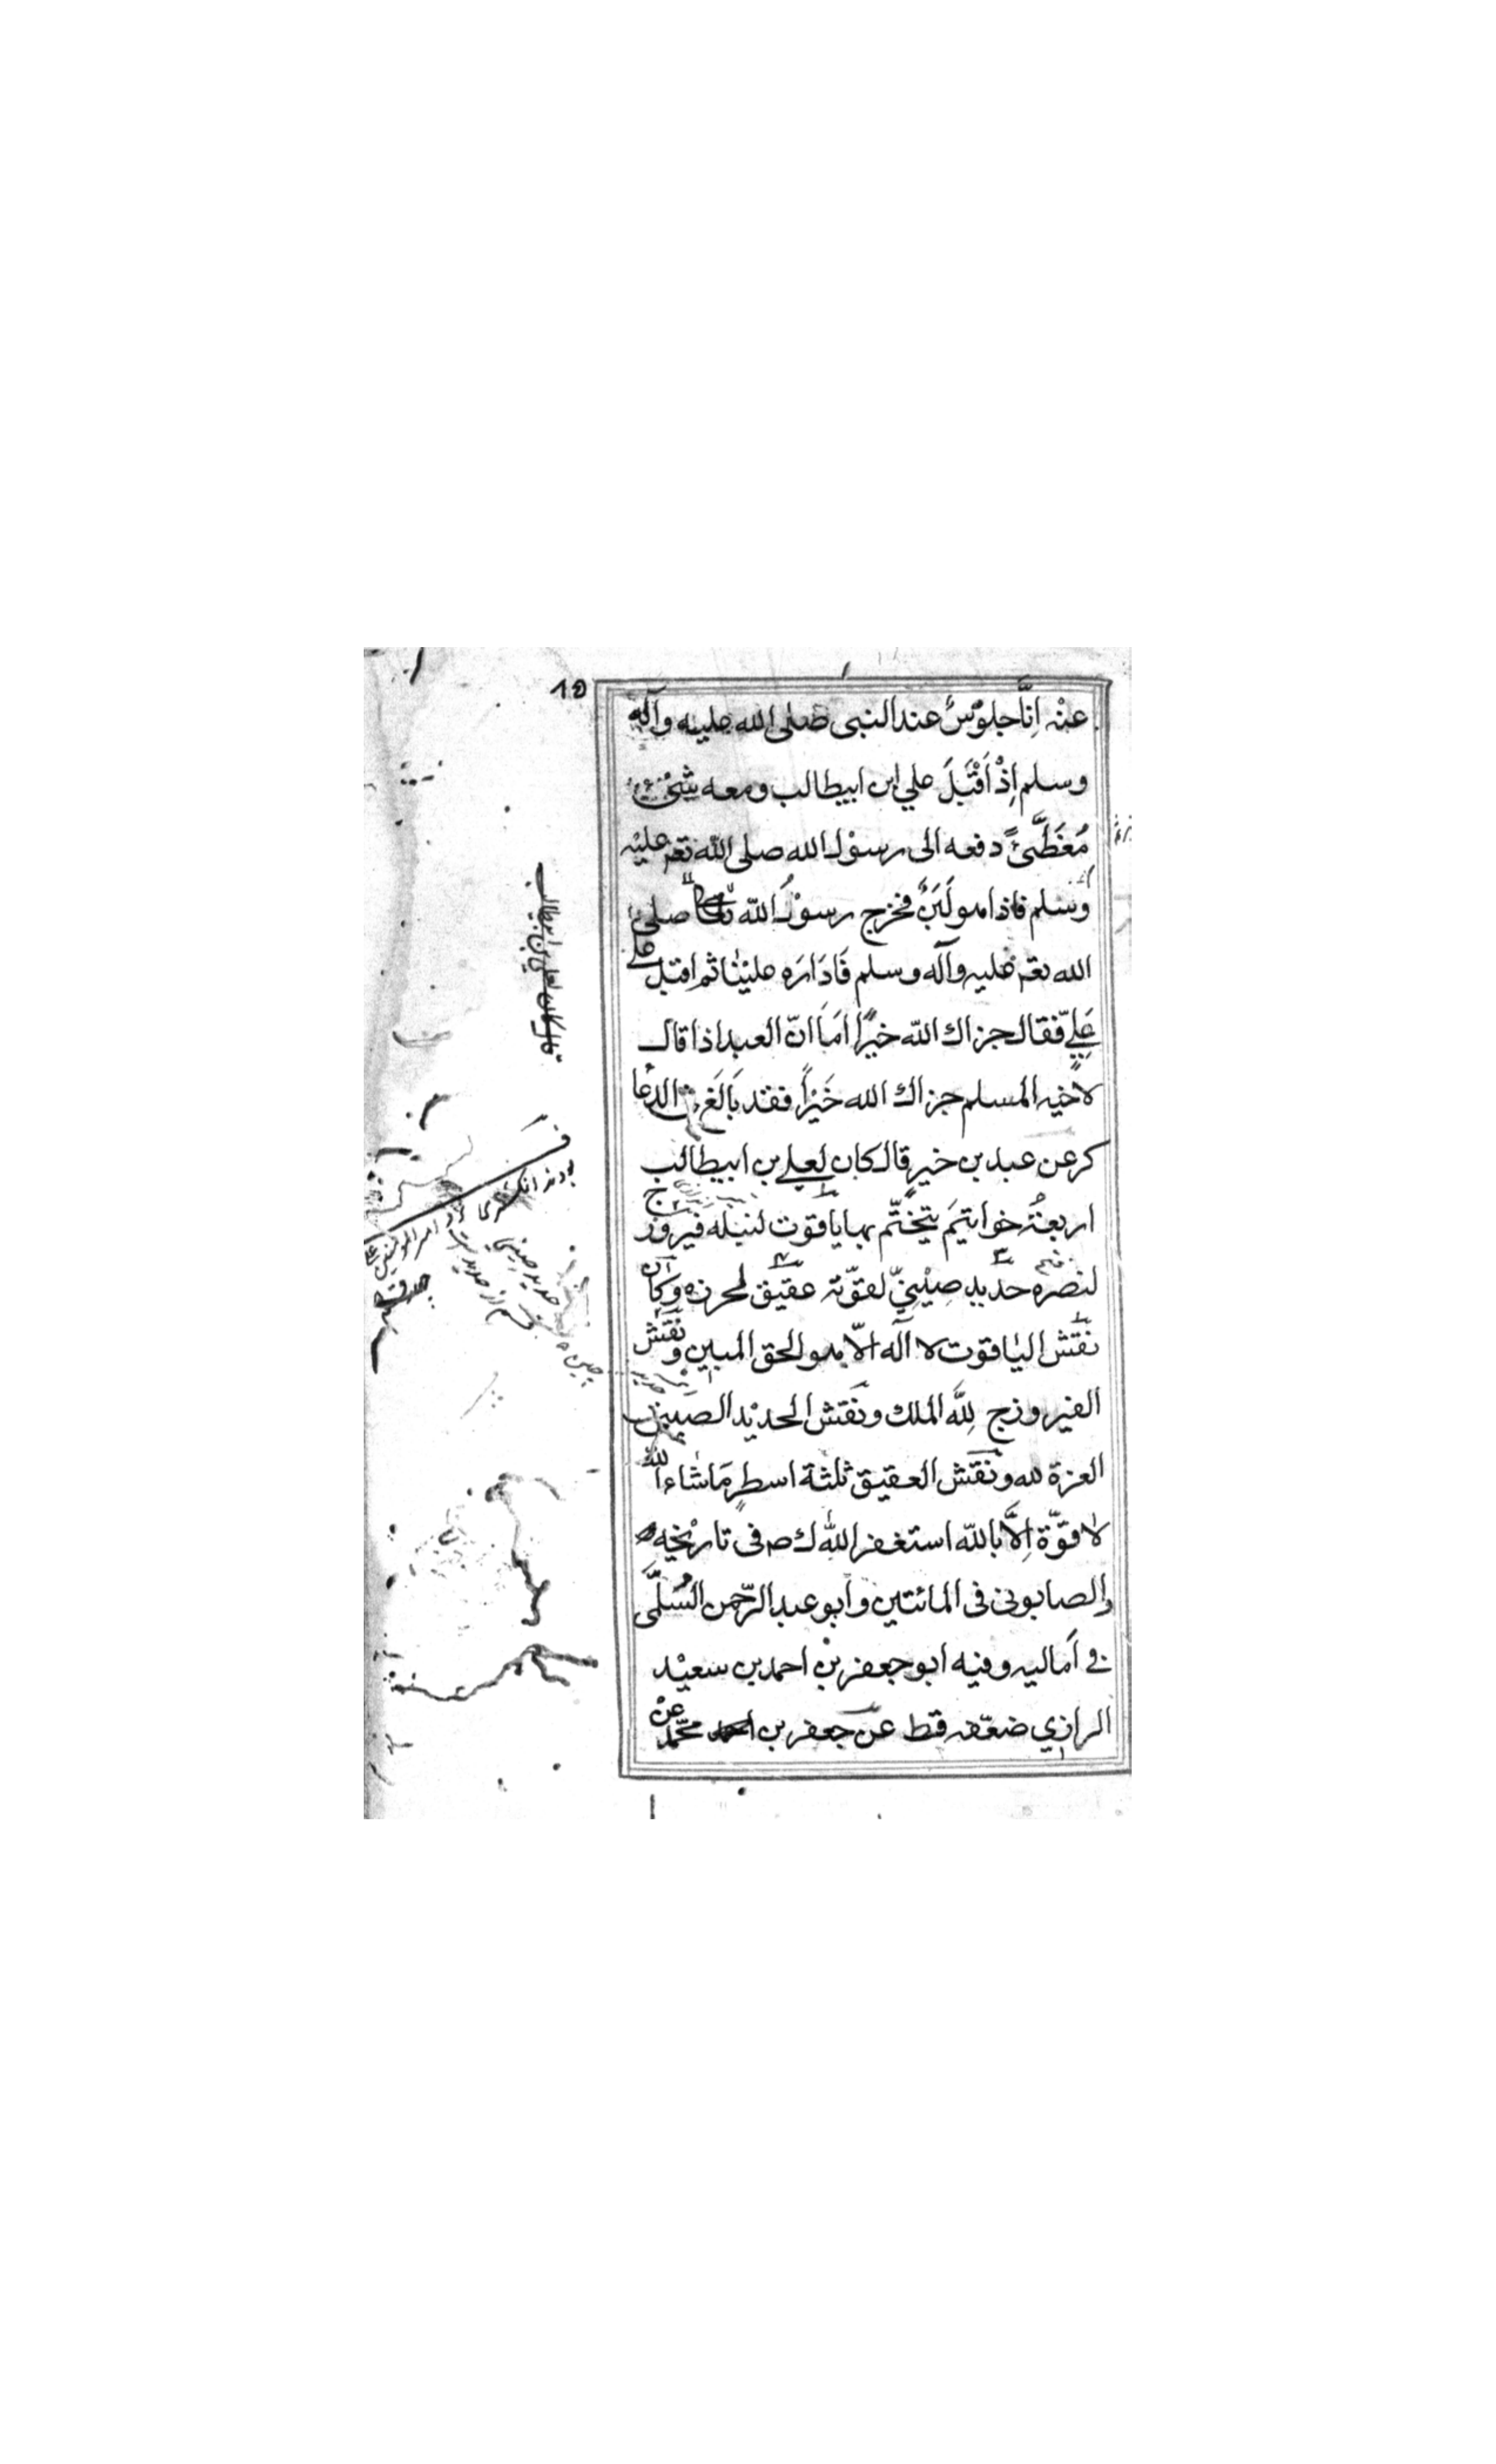 ١٥
عنْه اِنَّا جلوْسٌ عند النبي صلى الله عليه وآله
وسلم اِذْ اَقْبَلَ علي ابن ابيطالب ومعه شئٌ
مُغَطًّى دفعه الى رسوْل الله صلى الله تعم عليْه
وسلم فاذا هو لَبَنٌ فخرج رسوْلُ الله صلى
الله تعم عليه وآله وسلم فَادَارَه عليْنا ثم اقبل على
عَلِيّ فقال جزاك الله خيرًا اَمَا انّ العبد اذا قال
لاخيه المسلم جزاك الله خَيْرًا فقد بَالَغَ في الدعا
كر عن عبد بن خير قال كان لعلي بن ابيطالب
اربعةُ خواتيمَ يتختّم بها ياقوت لنبله فيروزج
لنصره حديد صِيْنِيّ لقوّته عقيق لحرزه وكان
نقش الياقوت لا آله الاّ هو الحق المبين ونقش
الفيروزج لِلّه الملك ونَقش الحديْد الصيني
العزة لله ونَقش العقيق ثلثة اسطرٍ مَا شاء الله
لا قوّة اِلاّ بالله استغفر الله ك ص فى تاريْخِه
والصابوني فى المائتين وابو عبد الرّحمن السُلَمَى
في اَماليه وفيه ابو جعفر بن احمد بن سعيْد
الرازي ضعّفه قط عن جعفر بن محمّد عنْ
قال كان لعلي بن ابيطالب
بودند انكشترى
امير المؤمنين
حديد صيني